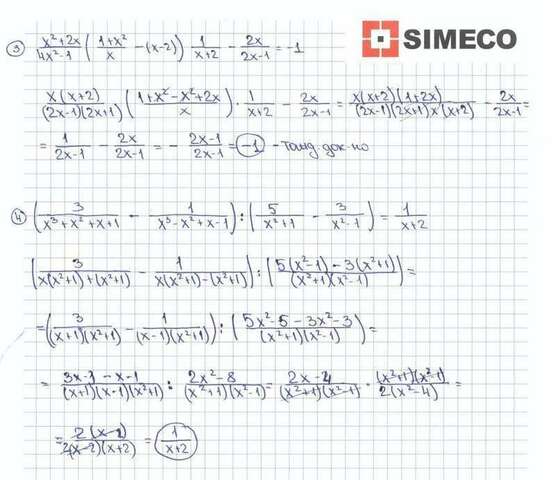 SIMECO
③ (x²+2x)/(4x²-1) ((1+x²)/x - (x-2)) 1/(x+2) - 2x/(2x-1) = -1
x(x+2)/((2x-1)(2x+1)) ((1+x²-x²+2x)/x) · 1/(x+2) - 2x/(2x-1) = x(x+2)(1+2x)/((2x-1)(2x+1)x(x+2)) - 2x/(2x-1) =
= 1/(2x-1) - 2x/(2x-1) = - (2x-1)/(2x-1) = -1 - тожд. док-но
④ (3/(x³+x²+x+1) - 1/(x³-x²+x-1)) : (5/(x²+1) - 3/(x²-1)) = 1/(x+2)
(3/(x(x²+1)+(x²+1)) - 1/(x(x²+1)-(x²+1))) : ((5(x²-1)-3(x²+1))/((x²+1)(x²-1))) =
= (3/((x+1)(x²+1)) - 1/((x-1)(x²+1))) : ((5x²-5-3x²-3)/((x²+1)(x²-1))) =
= (3x-3-x-1)/((x+1)(x-1)(x²+1)) : (2x²-8)/((x²+1)(x²-1)) = (2x-4)/((x²+1)(x²-1)) · (x²+1)(x²-1)/(2(x²-4)) =
= 2(x-2)/(2(x-2)(x+2)) = 1/(x+2)